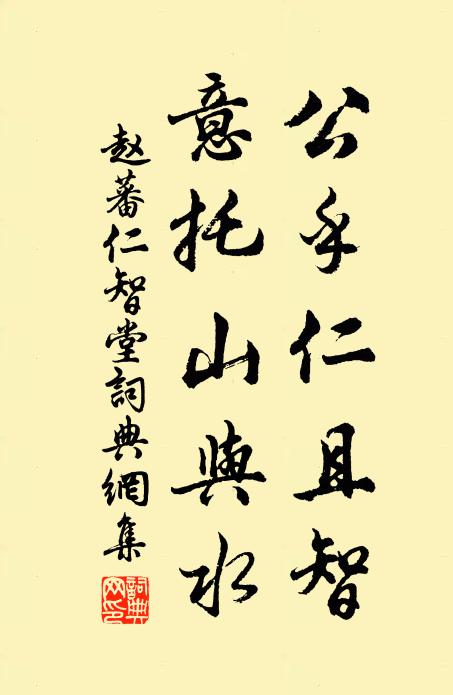 公乎仁且智
意托山與水
赵蕃仁智堂詞典網集
詞典網印